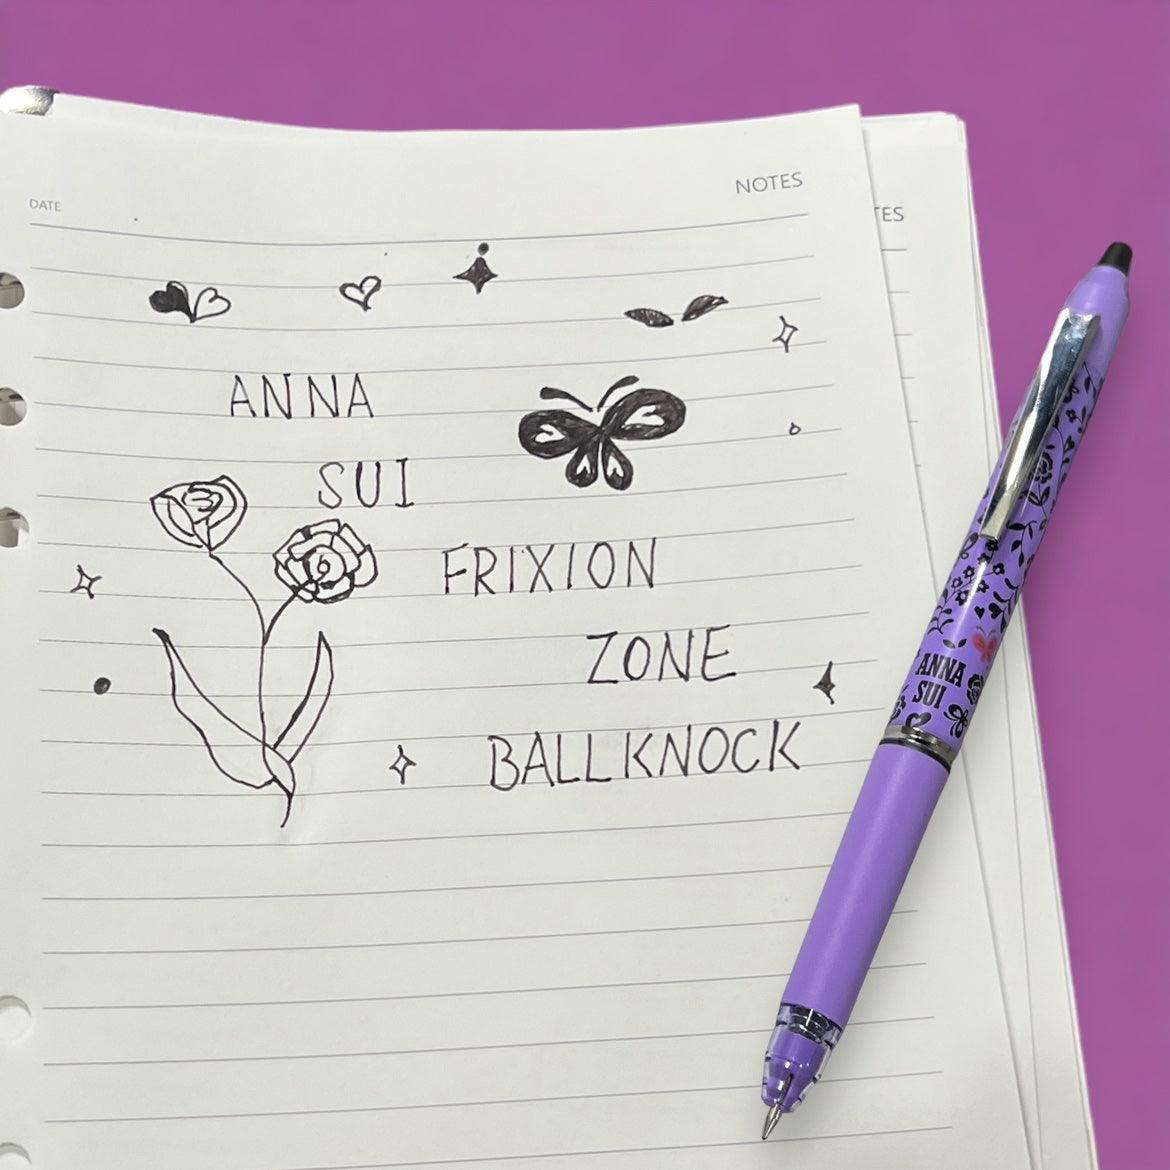 DATE
NOTES
TES
ANNA
SUI
FRIXION
ZONE
BALLKNOCK
ANNA
SUI